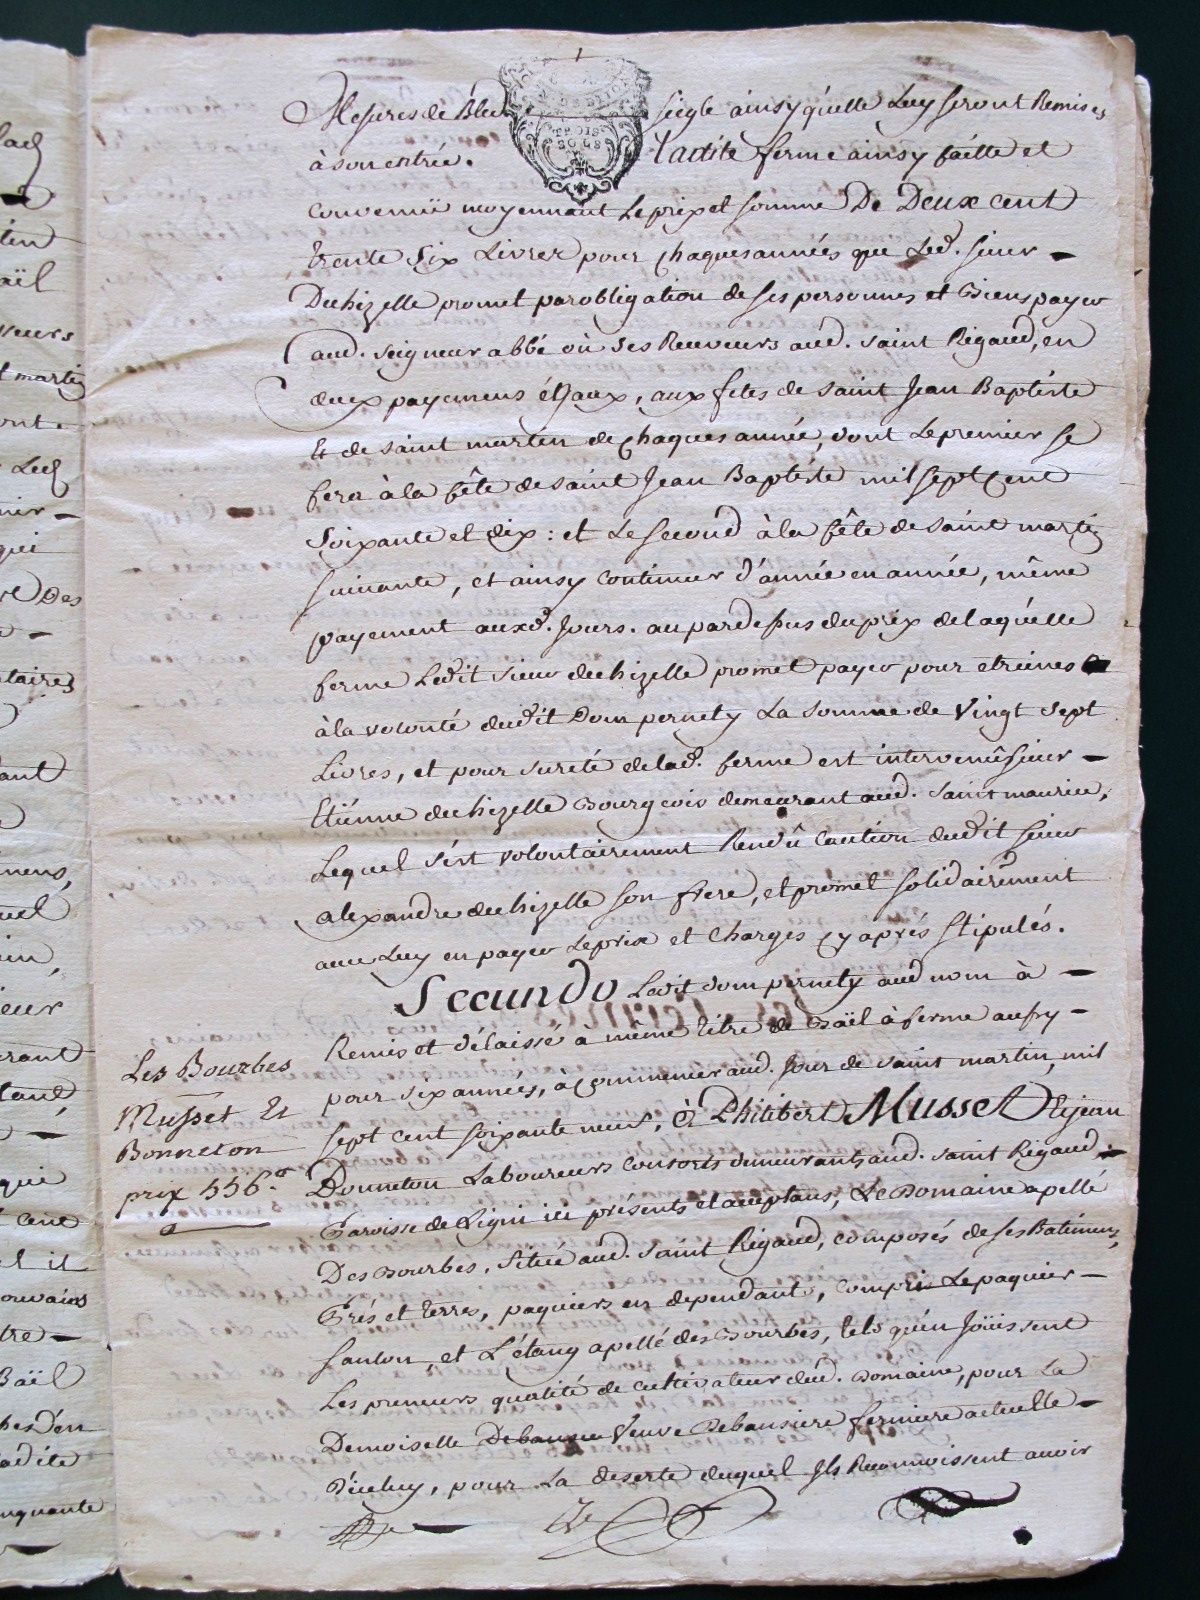 Mesures de Bled seigle ainsy quelle Luy seront Remises
TROIS SOLS
à son entrée. Ladite ferme ainsy faitte et
convenuë moyennant Le prix et somme De Deux cent
trente six Livres pour chaques années que Led. sieur
Duchizelle promet par obligation de ses personnes et Biens payer
aud. seigneur abbé où ses Receveurs aud. saint Rigaud, en
deux payemens égaux, aux fetes de saint Jean Baptéste
& de saint martin de chaques année, dont Le premier se
fera à la fête de saint Jean Baptéste mil sept cent
soixante et dix : et Le second à la fête de saint martin
suivante, et ainsy continuer d'année en année, même
payement auxd. Jours. au par dessus du prix de laquelle
ferme Ledit sieur duchizelle promet payer pour etreines
à la volonté dudit Dom pernety La somme de Vingt sept
Livres, et pour sureté de lad. ferme est intervenû sieur
Etiénne duchizelle Bourgeois demeurant aud. saint maurice,
Lequel s'est volontairement Rendû caution dudit sieur
alexandre duchizelle son frere, et promet solidairement
avec Luy en payer Le prix et charges cy aprés stipulés.
Secundo Ledit dom pernety aud nom à
Remis et délaissé à même titre de Baïl à ferme aussy
pour six années, à commencer aud. Jour de saint martin, mil
sept cent soixante neuf, à Philibert Musset & jean
Donneton Laboureurs consorts demeurants aud. saint Rigaud
Paroisse de Ligni ici présents et acceptans, Le Domaine apellé
Des Bourbes, situé aud. saint Rigaud, composés de ses Batimens,
Prés et terres, paquiers en dependants, compris Le paquier
santon, et L'étang apellé des Bourbes, tels qu'en Joüissent
Les preneurs qualité de cultivateur dud. Domaine, pour La
Demoiselle Veuve Debansiere fermiere actuelle
D'iceluy, pour La deserte duquel Ils Reconnoissent avoir
Les Bourbes
Musset Et
Bonneton
prix 556.